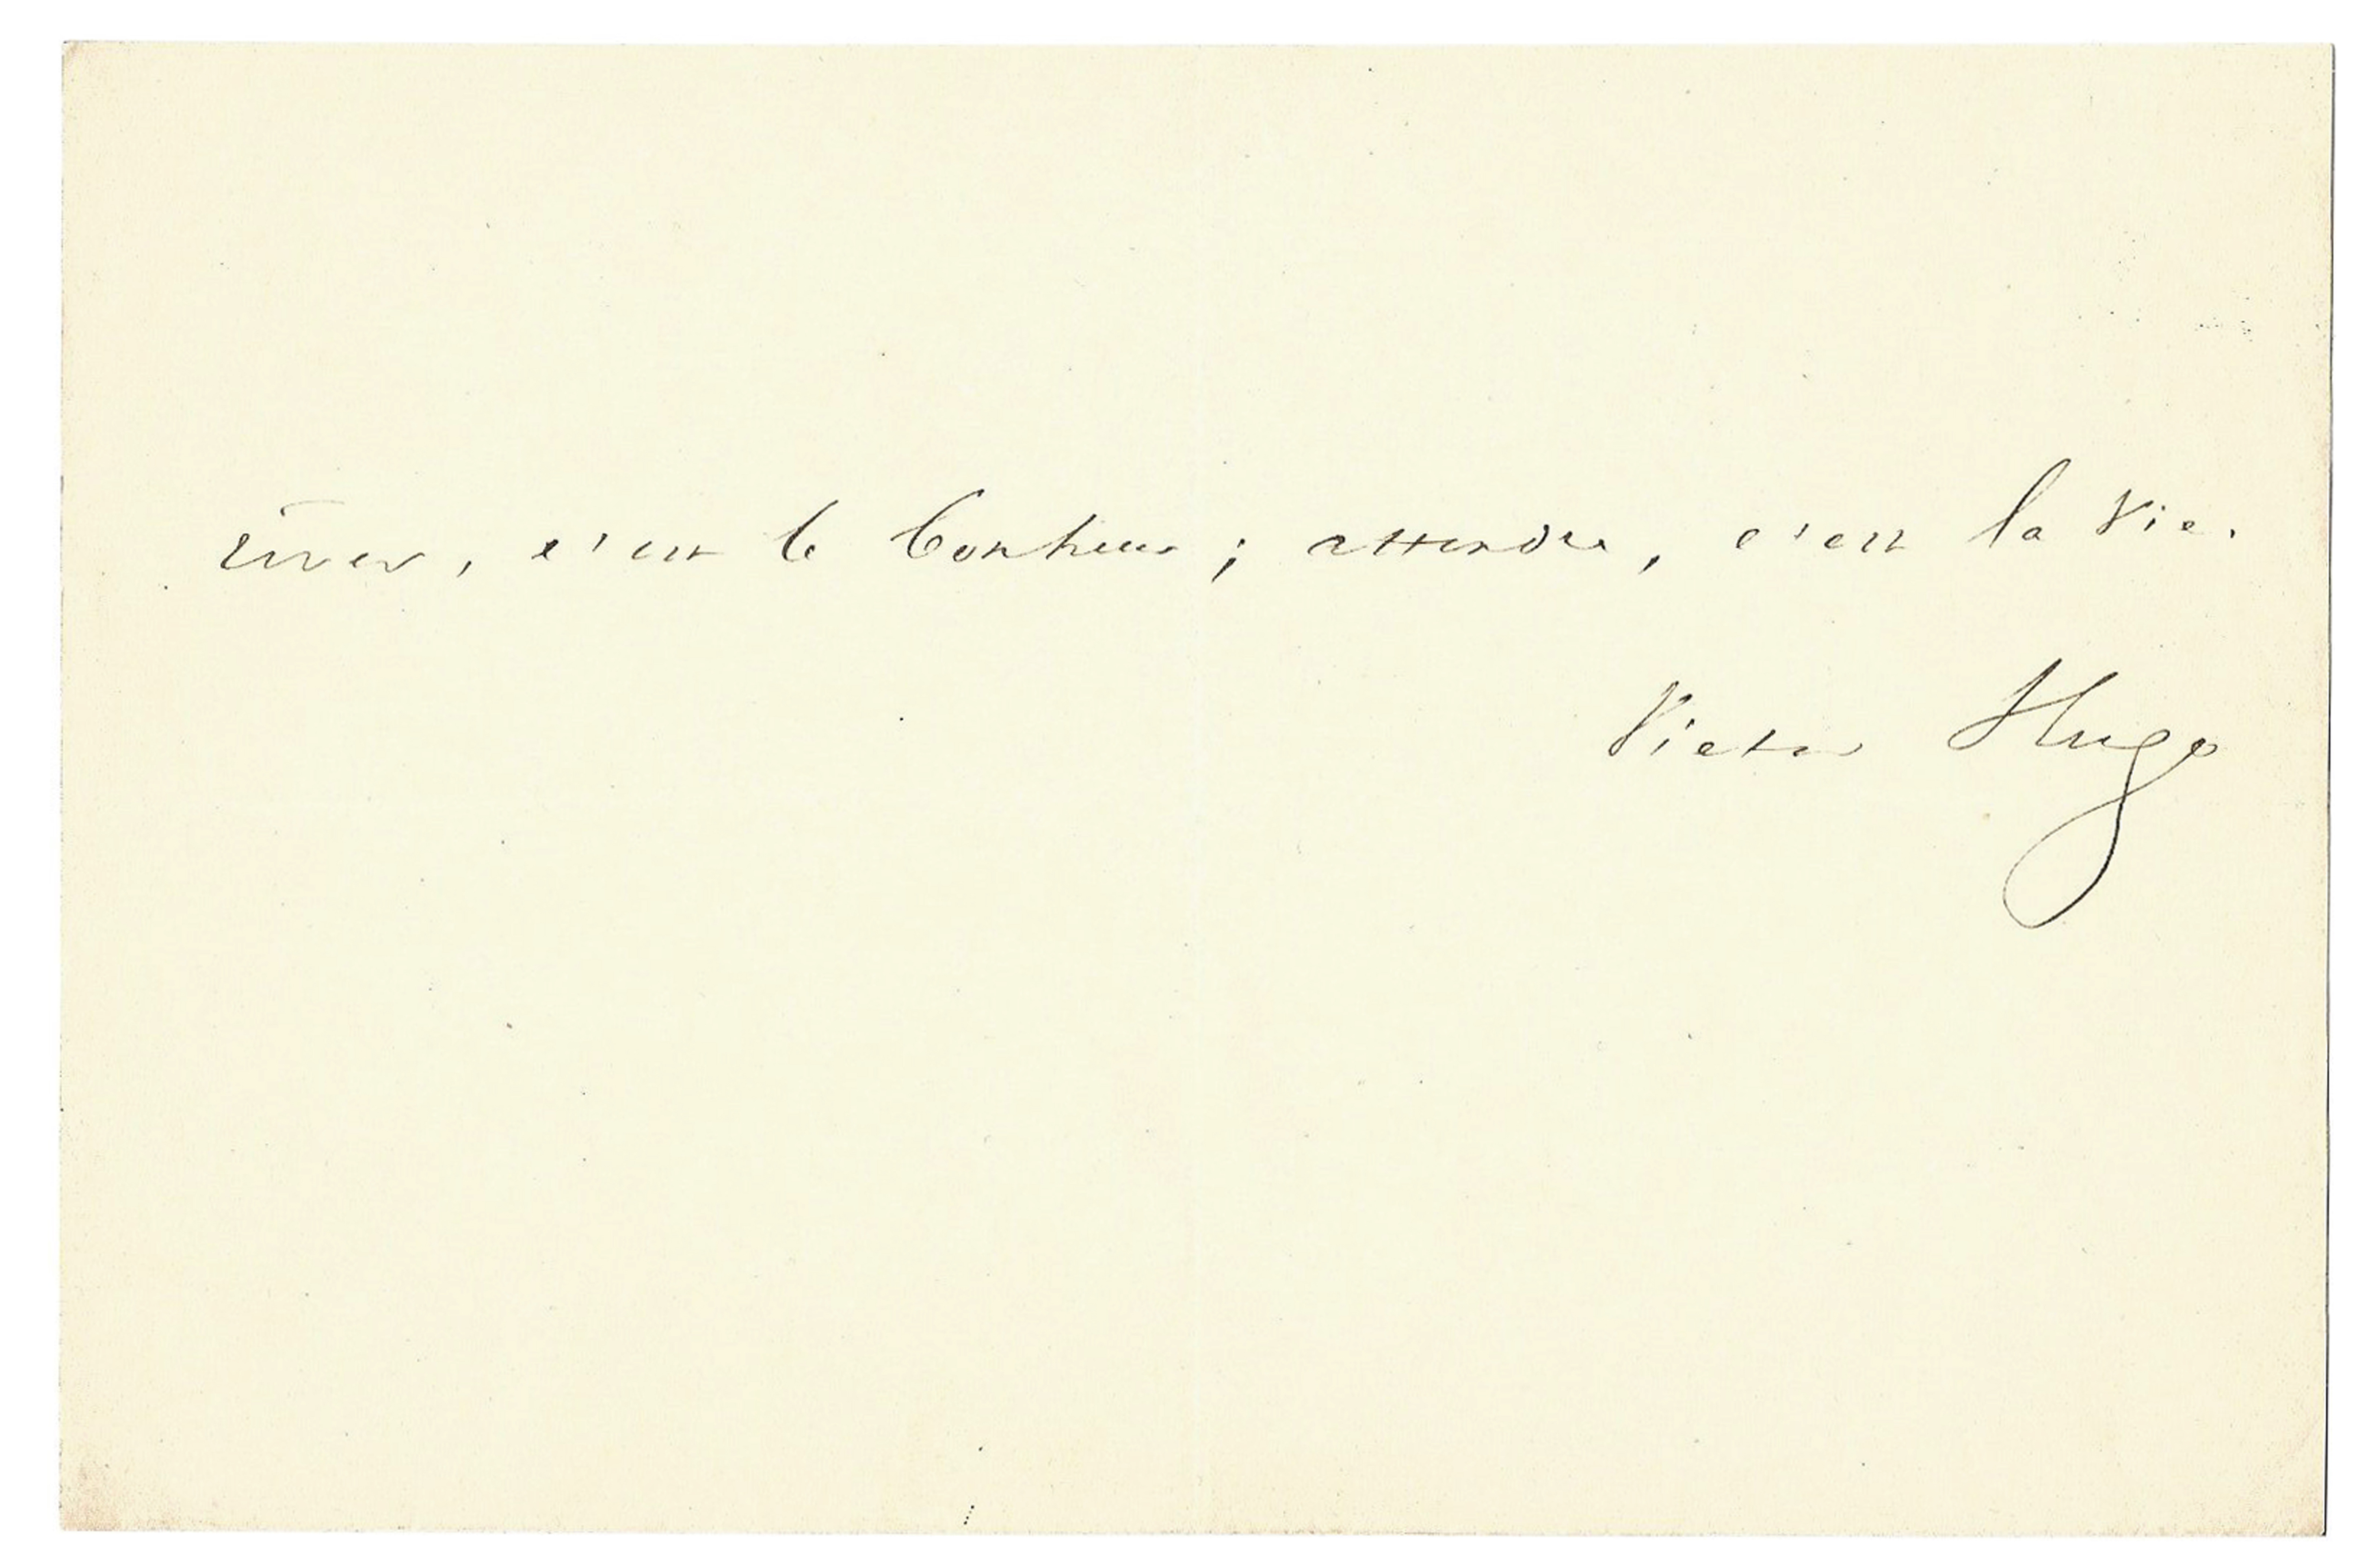 rêver, c'est le bonheur ; attendre, c'est la vie.
Victor Hugo